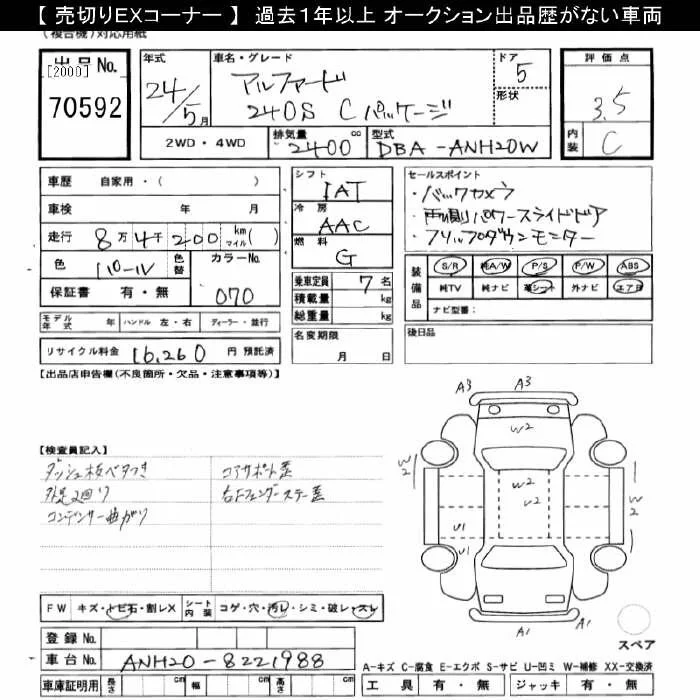 【 売切りEXコーナー 】 過去1年以上 オークション出品歴がない車両
(複合機)対応用紙
出品No.
[2000]
70592
年式
24/5月
車名・グレード
アルファード
240S Cパッケージ
ドア
5
形状
評価点
3.5
内装
C
2WD・4WD
排気量
2400 cc
型式
DBA-ANH20W
車歴 自家用・( )
車検 年 月
走行 8万4千200 km マイル( )
色 パール 色替
カラーNo. 070
保証書 有・無
シフト
IAT
冷房
AAC
燃料
G
乗車定員 7名
積載量 kg
総重量 kg
セールスポイント
・バックカメラ
・両側パワースライドドア
・フリップダウンモニター
装備品
S/R 純A/W P/S P/W ABS
純TV 純ナビ 革シート 外ナビ エアB
ナビ型番:
モデル年式 年 ハンドル 左・右 ディーラー・並行
リサイクル料金 16,260 円 預託済
名変期限
月 日
後日品
【出品店申告欄(不良箇所・欠品・注意事項等)】
【検査員記入】
ダッシュ板ベタつき
コアサポート歪
コンデンサー曲がり
右Fフェンダーステー歪
A3 A3
W2
W2
W2
U2
W2
U1
U1
A1 A1
スペア
FW キズ・トビ石・割レX
シート内装 コゲ・穴・汚レ・シミ・破レ・スレ
登録No.
車台No. ANH20-8221988
車庫証明用 長さ cm 幅 cm 高さ cm
A-キズ C-腐食 E-エクボ S-サビ U-凹ミ W-補修 XX-交換済
工具 有・無 ジャッキ 有・無